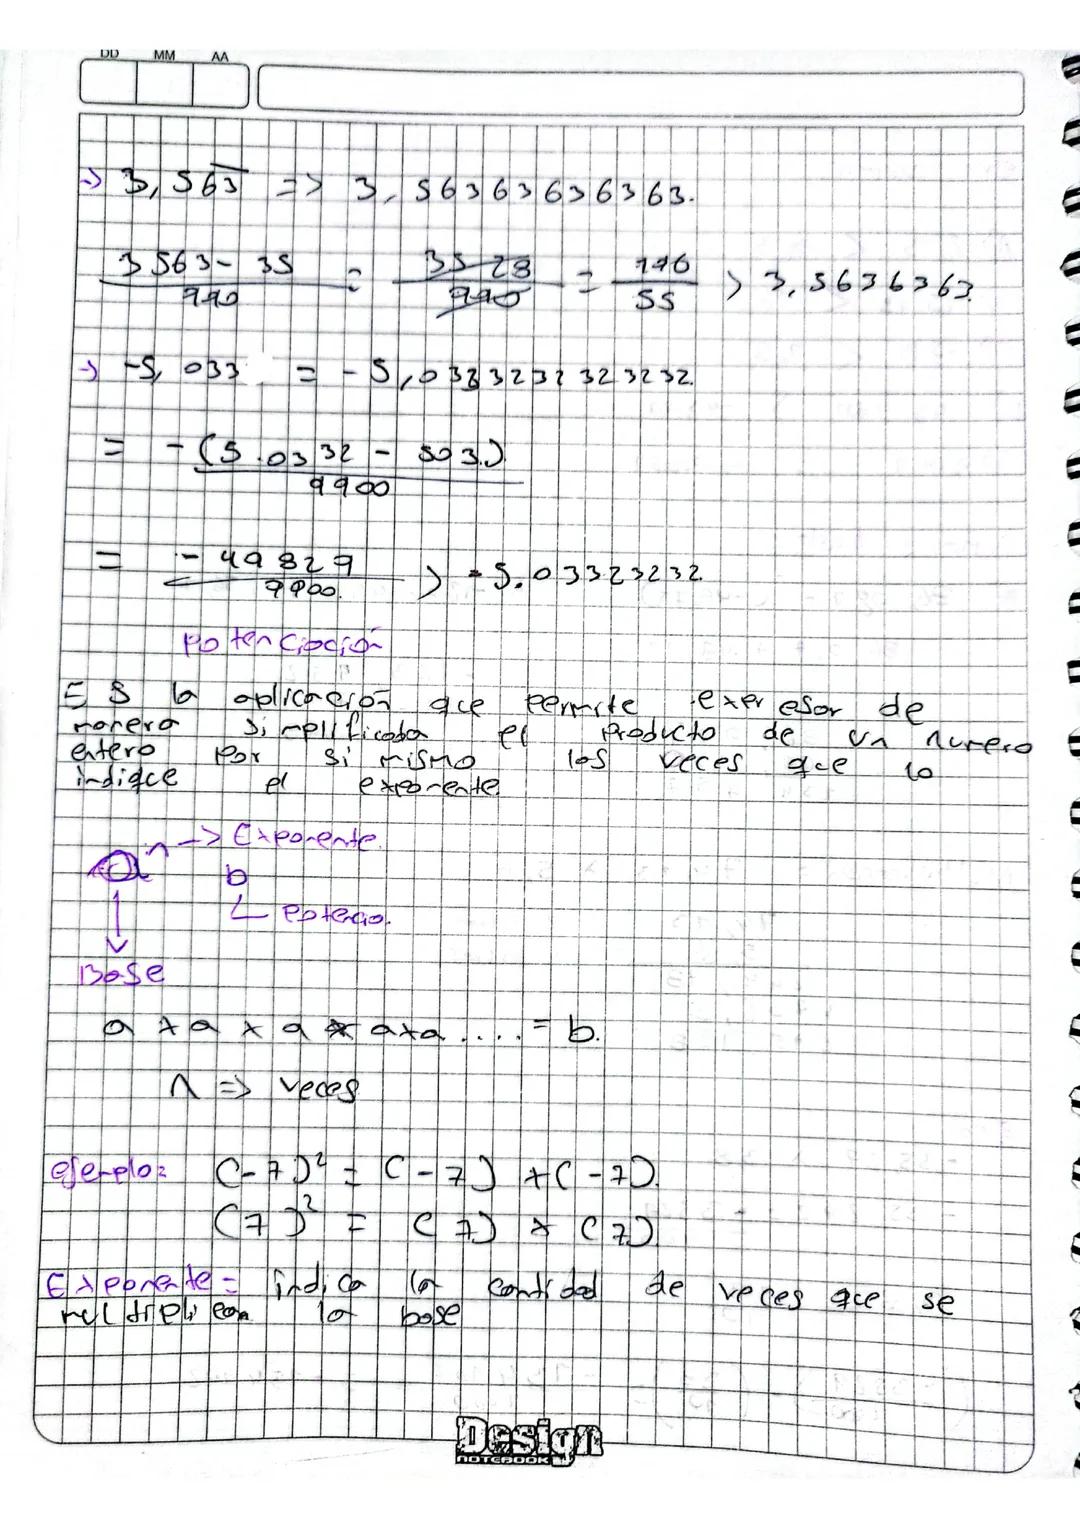 DD MM AA
→ 3,563 => 3,56363636363.
3563 - 35 / 990 = 3528 / 990 = 196 / 55 > 3,5636363.
→ -5,033 = -5,0333232323232.
= -(5.0332 - 503.) / 9900
= -49829 / 9900. > -5.03323232.
potenciación
Es la aplicación que permite expresar de
manera simplificada el producto de un numero
entero por si mismo las veces que lo
indique el exponente.
a n -> Exponente.
b
potencia.
Base
a x a x a x a x a .... = b.
n => veces
ejemplo: (-7)² = (-7) x (-7).
(7)² = (7) x (7).
Exponente = indica la cantidad de veces que se
multiplican la base
Design
NOTEBOOK